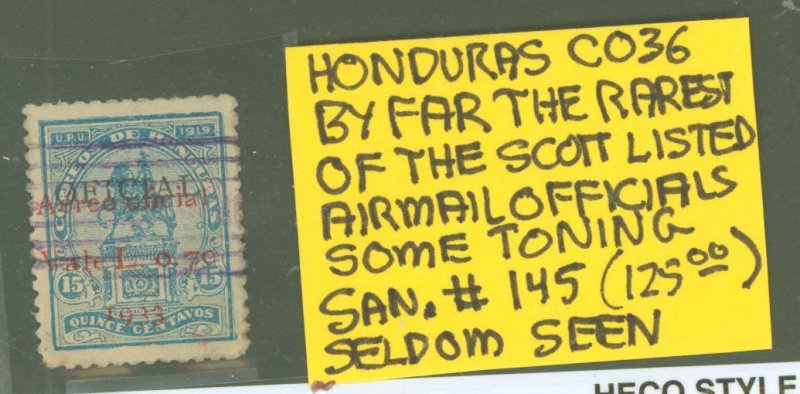 U.P.U. 1919
OFICIAL
Aereo Oficial
Vale L. 0.70
15 15
1933
QUINCE CENTAVOS
HONDURAS CO36
BY FAR THE RAREST
OF THE SCOTT LISTED
AIRMAIL OFFICIALS
SOME TONING
SAN. # 145 (125⁰⁰)
SELDOM SEEN
HECO STYLE